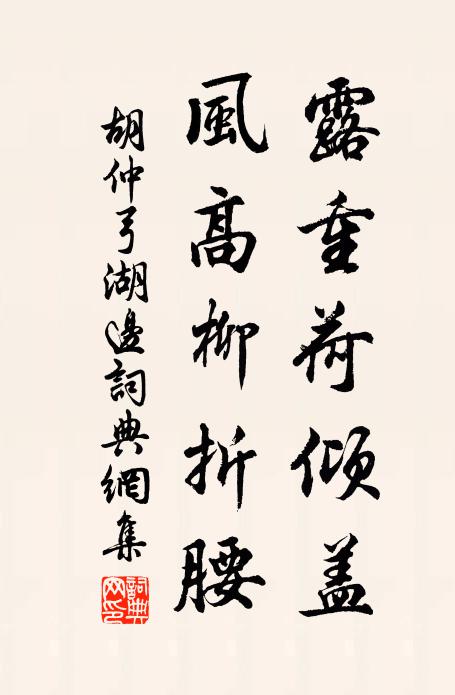 露重荷傾盖
風高柳折腰
胡仲弓湖邊詞典網集
詞典网印